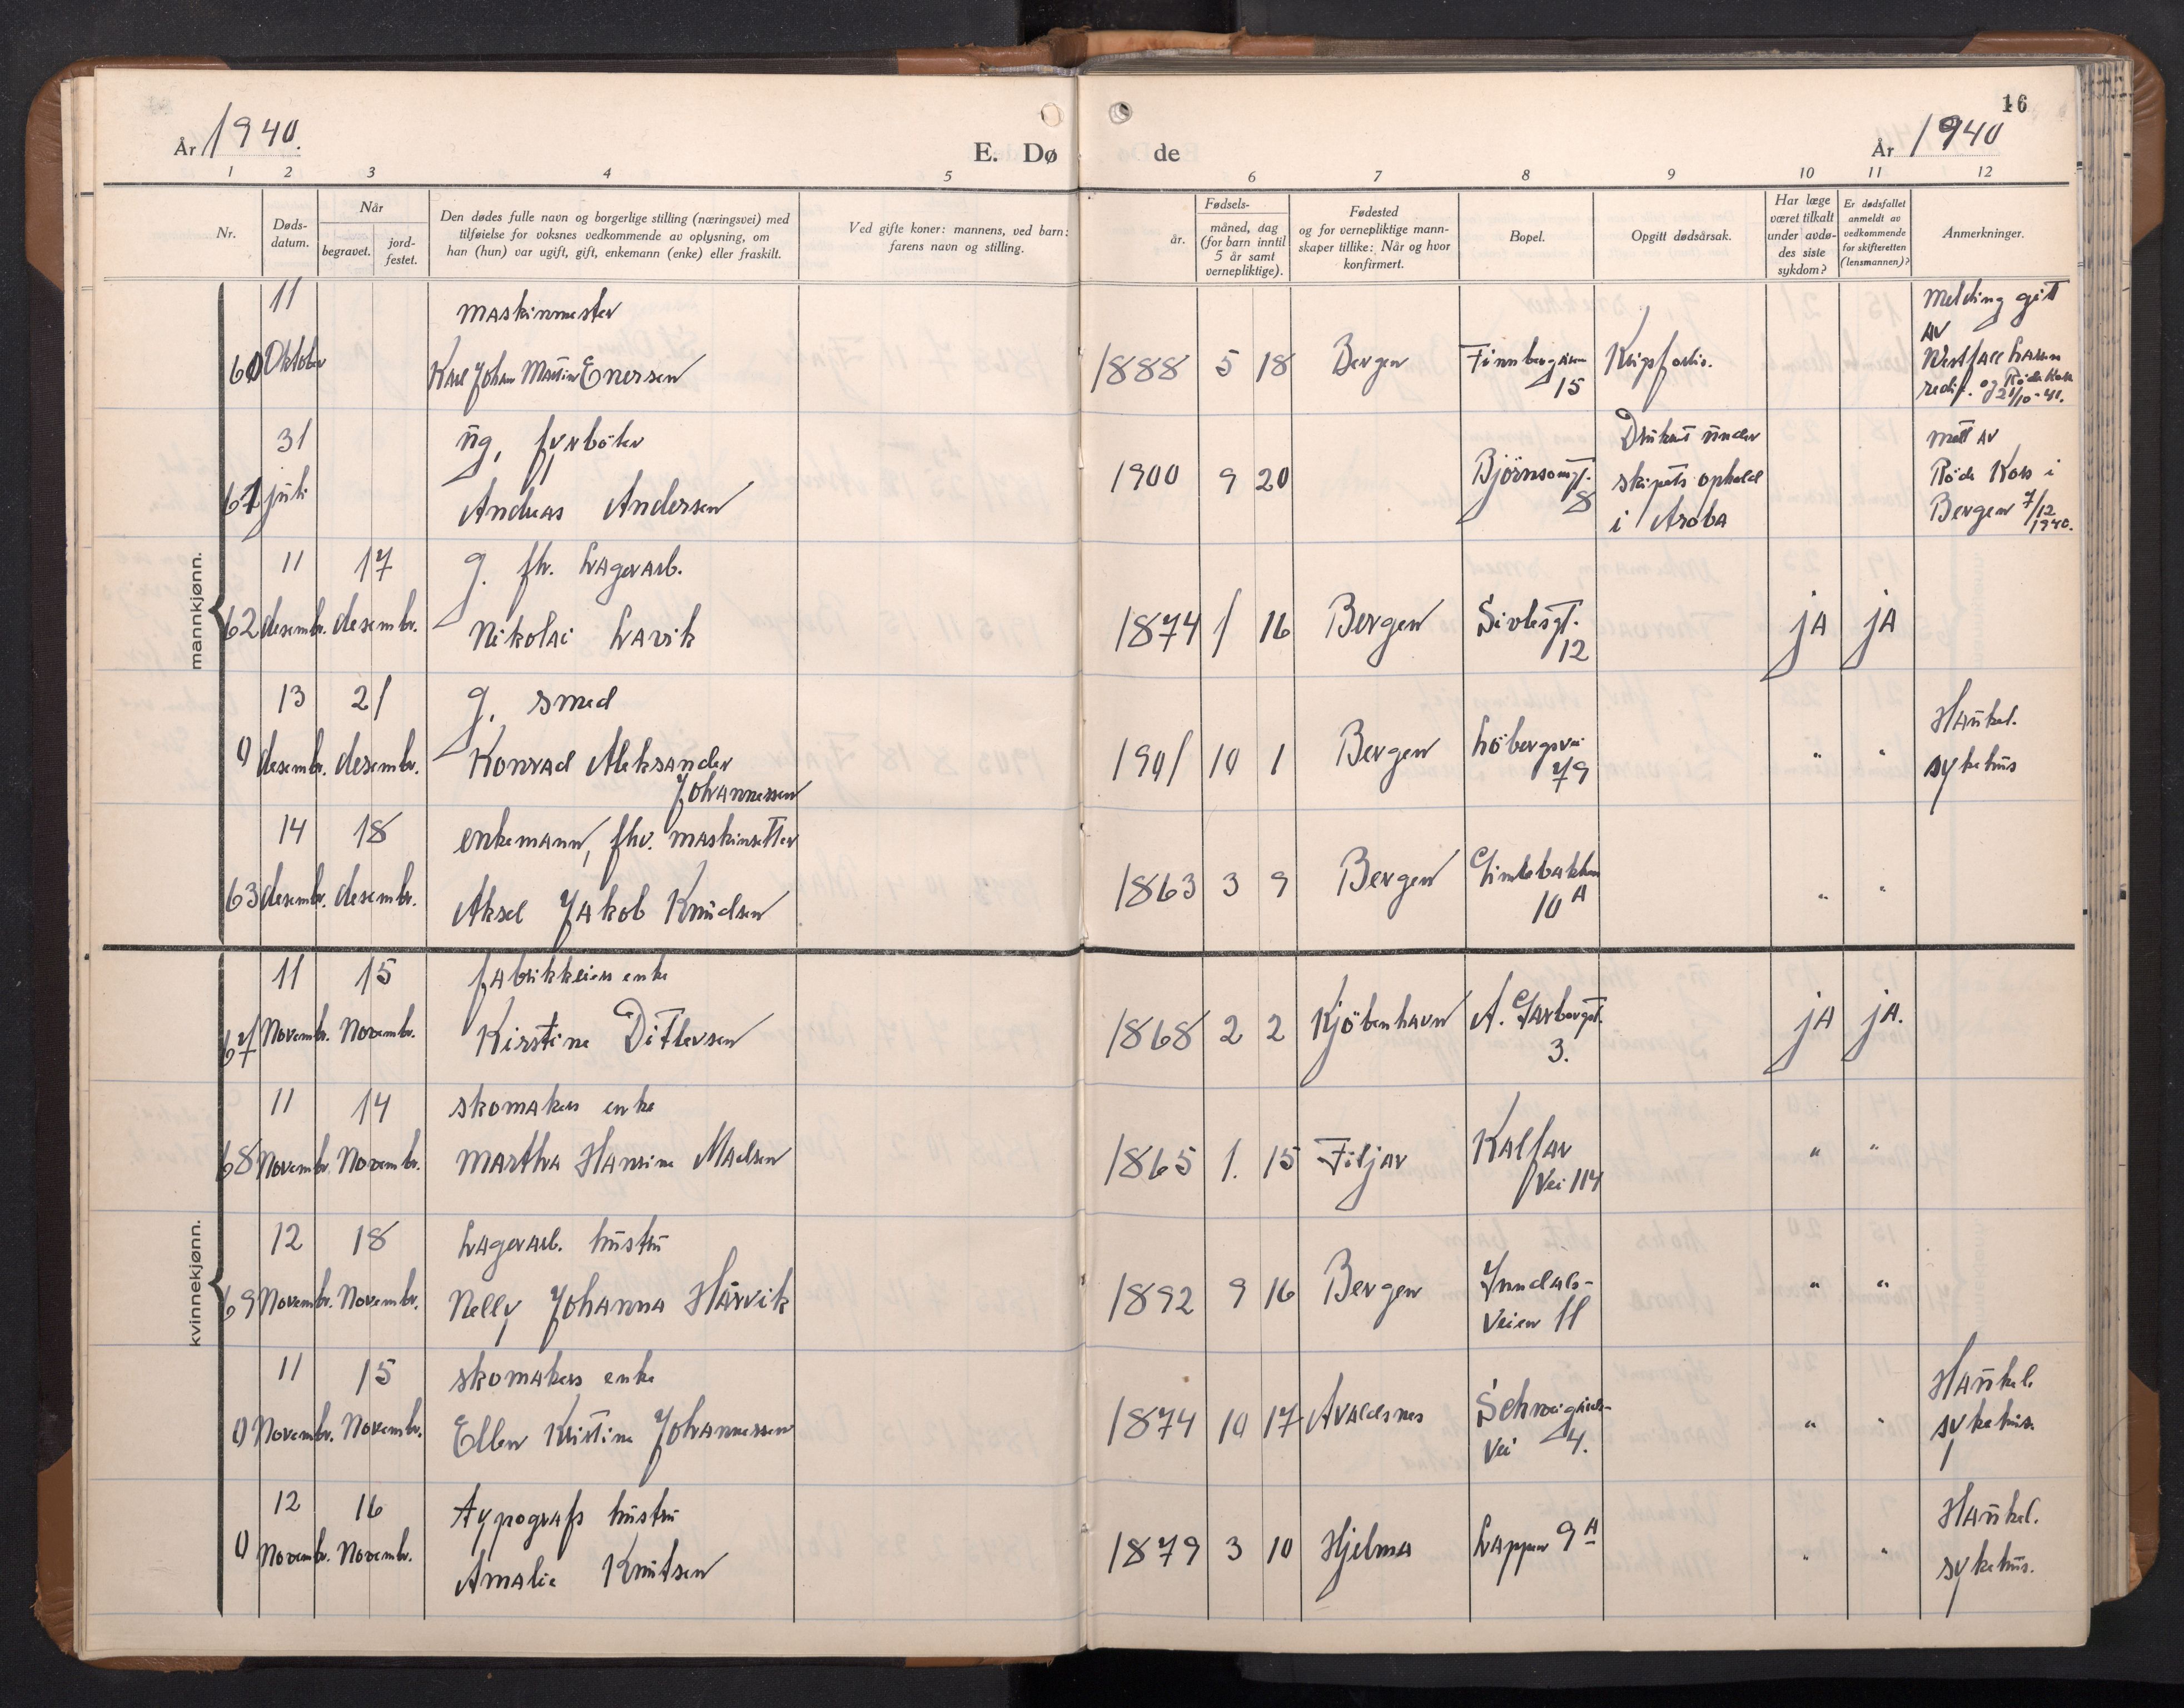 År 1940.
E. Dø
de
16
År 1940
1 2 3 4 5 6 7 8 9 10 11 12
Nr.
Døds-
datum.
Når
begravet.
jord-
festet.
Den dødes fulle navn og borgerlige stilling (næringsvei) med
tilføielse for voksnes vedkommende av oplysning, om
han (hun) var ugift, gift, enkemann (enke) eller fraskilt.
Ved gifte koner: mannens, ved barn:
farens navn og stilling.
Fødsels-
år.
måned, dag
(for barn inntil
5 år samt
vernepliktige).
Fødested
og for vernepliktige mann-
skaper tillike: Når og hvor
konfirmert.
Bopel.
Opgitt dødsårsak.
Har læge
været tilkalt
under avdø-
des siste
sykdom?
Er dødsfallet
anmeldt av
vedkommende
for skifteretten
(lensmannen)?
Anmerkninger.
mannkjønn.
11 maskinmester Melding gitt
av
60 Oktober Karl Johan Martin Enersen 1888 5 18 Bergen Finnbergåsen Krigsforlis. Westfall Larsen
15 redif. og Røde Kors
21/10-41.
31 ug. fyrbøter Druknet under melt av
61 juli Andreas Andersen 1900 9 20 Bjørnsonsgt. skipets ophold Røde Kors i
8 i Aruba Bergen 7/12
1940.
11 17 g. fh. Lagerarb.
62 desembr. desembr. Nikolai Larvik 1874 1 16 Bergen Sivlesgt. ja ja
12
13 21 g. smed Haukel.
0 desembr. desembr. Konrad Aleksander 1901 10 1 Bergen Løbergsvei " " sykehus
Johannessen 79
14 18 enkemann, fhv. maskinsetter
63 desembr. desembr. Aksel Jakob Knudsen 1863 3 9 Bergen Gimlebakken " "
10 A
kvinnekjønn.
11 15 fabrikkeiers enke
67 Novembr. Novembr. Kirstine Ditlevsen 1868 2 2 Kjøbenhavn A. Garborgsgt. ja ja.
3.
11 14 skomakers enke
68 Novembr. Novembr. Martha Hansine Madsen 1865 1. 15 Fitjar Kalfar " "
vei 114
12 18 Lagerarb. hustru
69 Novembr. Novembr. Nelly Johanna Hårvik 1892 9 16 Bergen Inndals- " "
veien 11
11 15 skomakers enke Haukel.
0 Novembr. Novembr. Ellen Kristine Johannessen 1874 10 17 Avaldsnes Schweigårds- " " sykehus.
vei 4.
12 16 Typografs hustru Haukel.
0 Novembr. Novembr. Amalie Knutsen 1879 3 10 Hjelma Lappen 9 A " " sykehus.